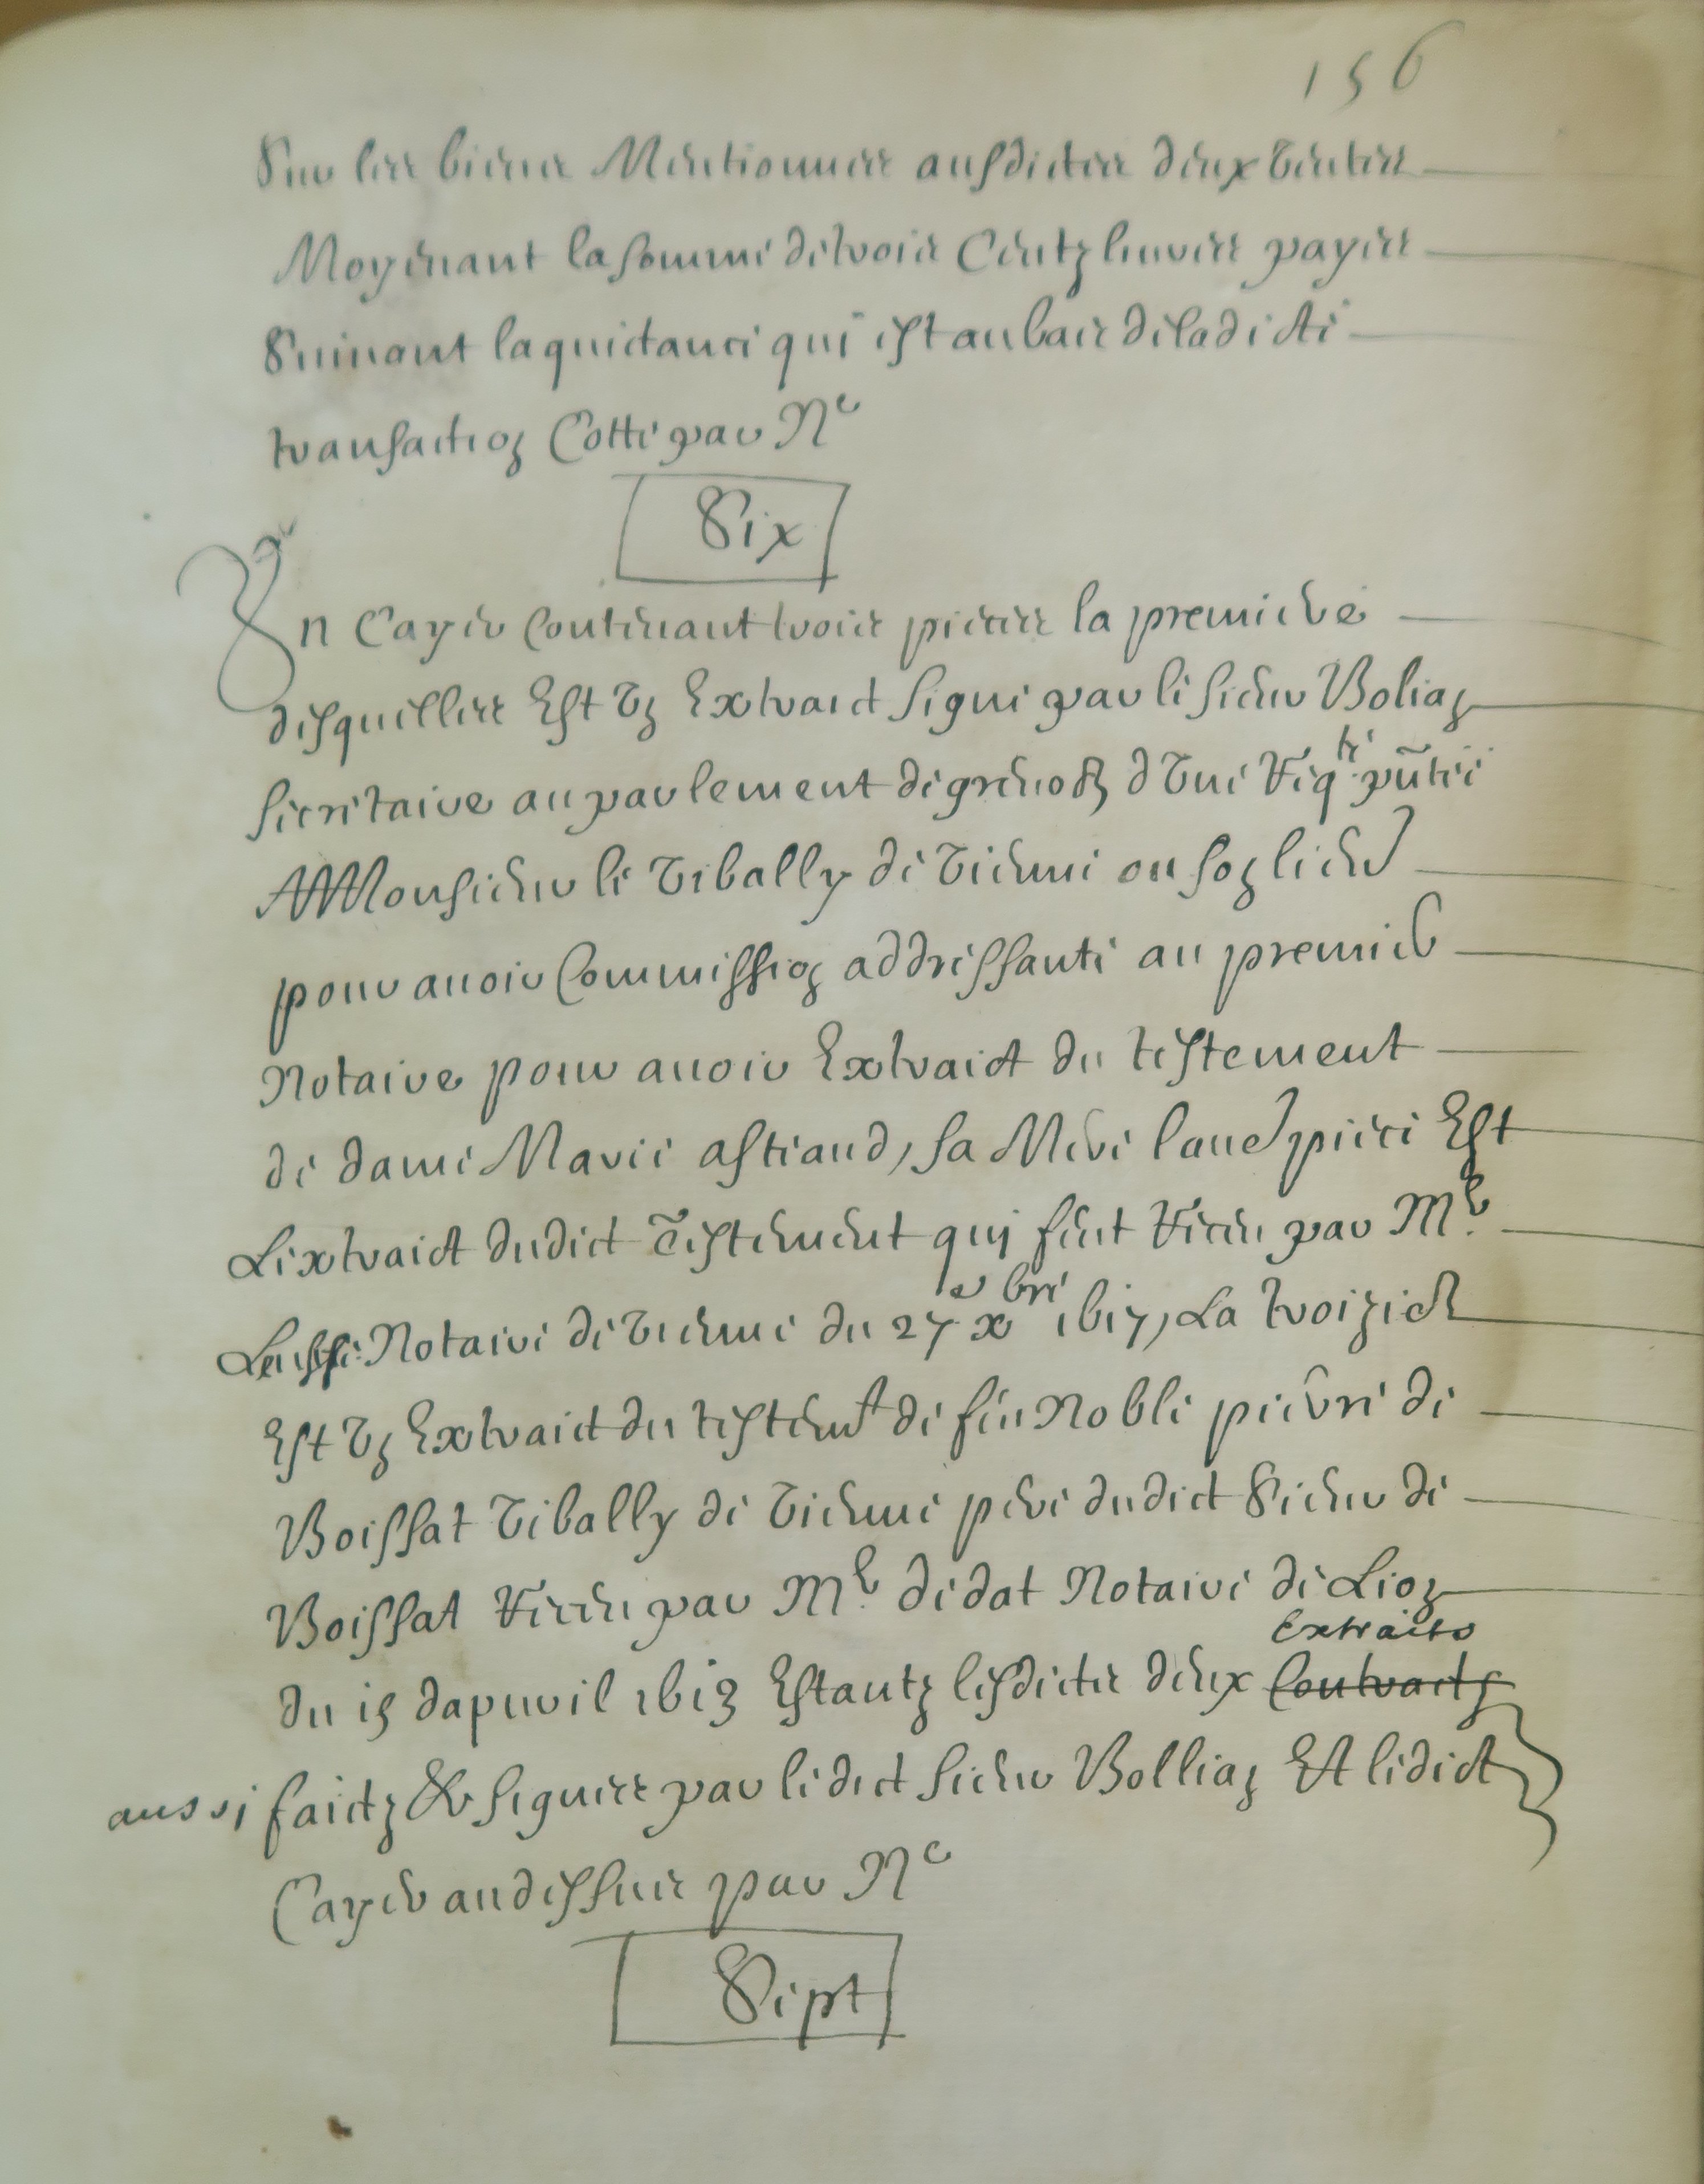 156
Sur les biens Mentionnes ausdictes deux ventes
Moyenant la somme de trois Centz liuvres payes
Suiuant la quictance qui est au bas de ladicte
transaction Cotte par N.e
Six
Vn Cayer Contenant trois pieces la premiere
desquelles Est vn Extraict signe par le sieur Bolian
secretaire au parlement de grenob. d vne req.te pñtee
A Monsieur le vibally de vienne ou son lieu.
pour auoir Commission addressante au premier
Notaire pour auoir Extraict du testement
de dame Marie astiaud, sa Mere laue. piece Est
Lextraict dudict Testement qui feut receu par M.e
Notaire de vienne du 27 xbre 1617, La troizie.
Est vn Extraict du testemt de feu Noble pierre de
Boissat vibally de vienne pere dudict Sieur de
Boissat receu par M.e dedat Notaire de Lion
Extraits
du 15 dapuril 1613 Estantz lesdictes deux Contractz
aussi faictz & signes par ledict sieur Bollian Et ledict
Cayer au dessus par N.e
Sept